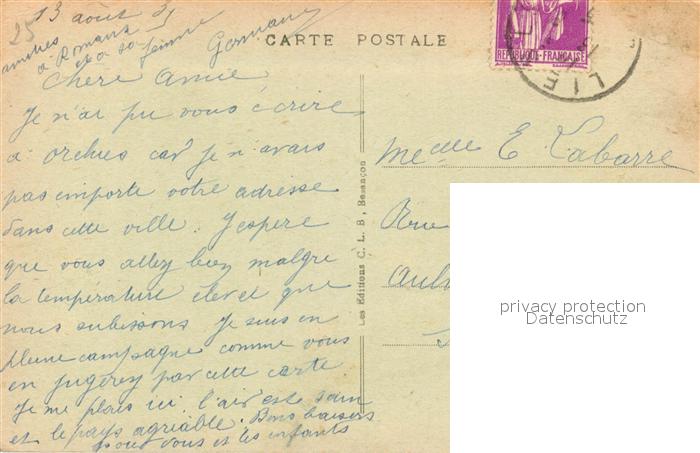 25
13 août 31
amitiés
à Romans
et à sa femme
Germaine
CARTE POSTALE
REPUBLIQUE-FRANÇAISE
Chère Amie
Je n'ai pu vous écrire
à Orchies car je n'avais
pas emporte votre adresse
dans cette ville. J'espère
que vous allez bien malgre
la température élevée que
nous subissons Je suis en
pleine campagne comme vous
en jugerez par cette carte
Je me plais ici l'air est sain
et le pays agréable. Bons baisers
pour vous et les enfants
Les Editions C. L. B., Besançon
Mcelle E Labarre
Rue
privacy protection
Datenschutz